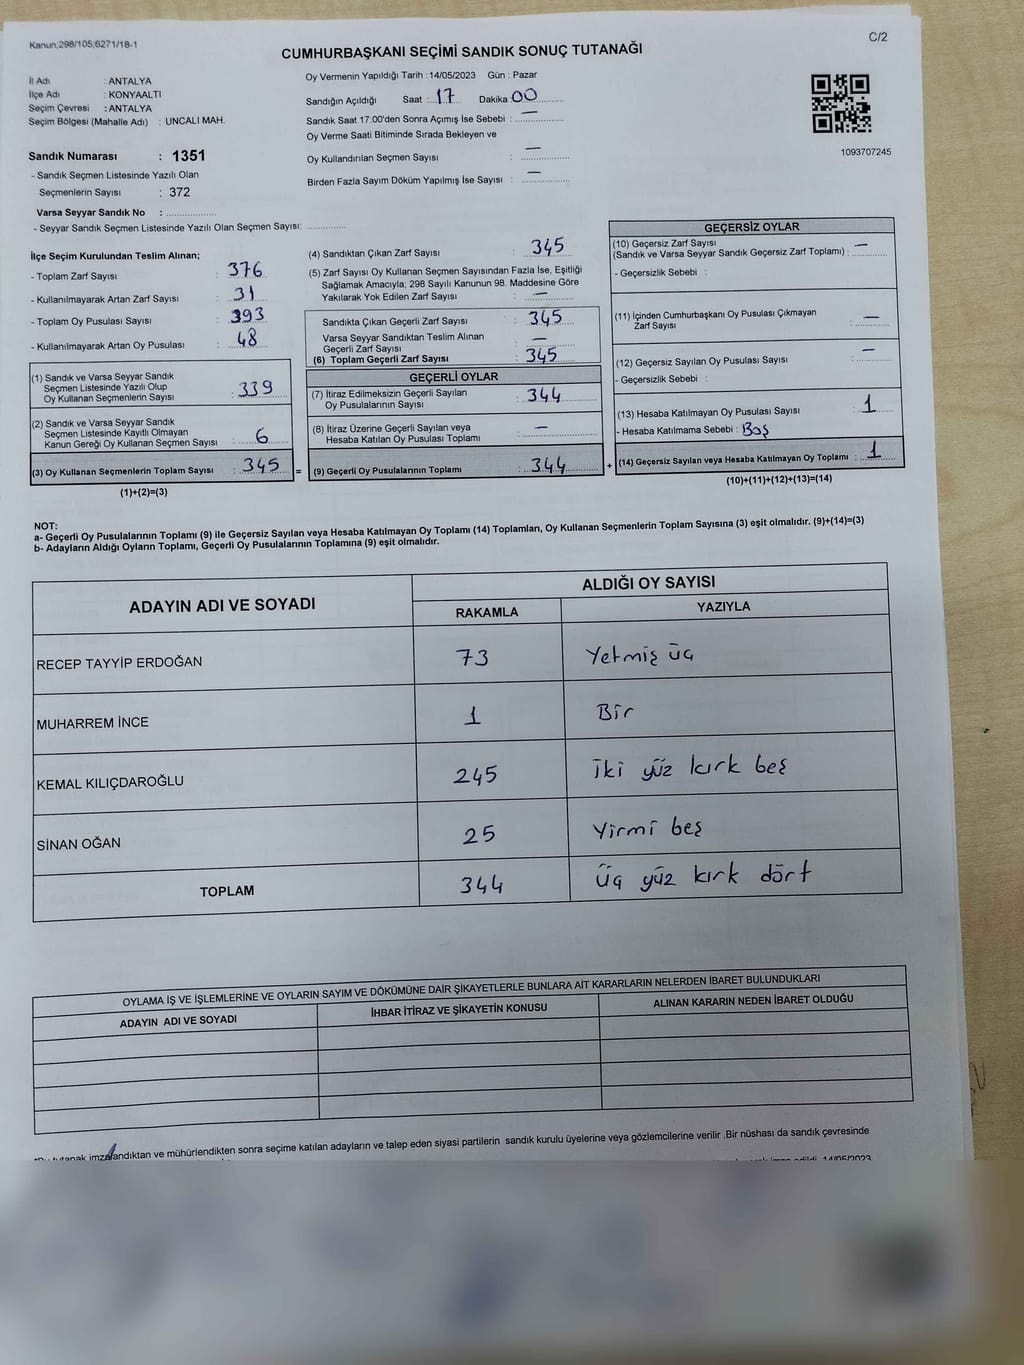 Kanun;298/105;6271/18-1
C/2
CUMHURBAŞKANI SEÇİMİ SANDIK SONUÇ TUTANAĞI
İl Adı : ANTALYA
İlçe Adı : KONYAALTI
Seçim Çevresi : ANTALYA
Seçim Bölgesi (Mahalle Adı) : UNCALI MAH.
Sandık Numarası : 1351
- Sandık Seçmen Listesinde Yazılı Olan
Seçmenlerin Sayısı : 372
Varsa Seyyar Sandık No :
- Seyyar Sandık Seçmen Listesinde Yazılı Olan Seçmen Sayısı:
Oy Vermenin Yapıldığı Tarih : 14/05/2023 Gün : Pazar
Sandığın Açıldığı Saat : 17 Dakika 00
Sandık Saat 17:00'den Sonra Açımış İse Sebebi : —
Oy Verme Saati Bitiminde Sırada Bekleyen ve
Oy Kullandırılan Seçmen Sayısı : —
Birden Fazla Sayım Döküm Yapılmış İse Sayısı : —
1093707245
İlçe Seçim Kurulundan Teslim Alınan;
- Toplam Zarf Sayısı : 376
- Kullanılmayarak Artan Zarf Sayısı : 31
- Toplam Oy Pusulası Sayısı : 393
- Kullanılmayarak Artan Oy Pusulası : 48
(1) Sandık ve Varsa Seyyar Sandık
Seçmen Listesinde Yazılı Olup
Oy Kullanan Seçmenlerin Sayısı : 339
(2) Sandık ve Varsa Seyyar Sandık
Seçmen Listesinde Kayıtlı Olmayan
Kanun Gereği Oy Kullanan Seçmen Sayısı : 6
(3) Oy Kullanan Seçmenlerin Toplam Sayısı : 345 =
(1)+(2)=(3)
(4) Sandıktan Çıkan Zarf Sayısı : 345
(5) Zarf Sayısı Oy Kullanan Seçmen Sayısından Fazla İse, Eşitliği
Sağlamak Amacıyla; 298 Sayılı Kanunun 98. Maddesine Göre
Yakılarak Yok Edilen Zarf Sayısı : —
Sandıkta Çıkan Geçerli Zarf Sayısı : 345
Varsa Seyyar Sandıktan Teslim Alınan
Geçerli Zarf Sayısı : —
(6) Toplam Geçerli Zarf Sayısı : 345
GEÇERLİ OYLAR
(7) İtiraz Edilmeksizin Geçerli Sayılan
Oy Pusulalarının Sayısı : 344
(8) İtiraz Üzerine Geçerli Sayılan veya
Hesaba Katılan Oy Pusulası Toplamı : —
(9) Geçerli Oy Pusulalarının Toplamı : 344 +
GEÇERSİZ OYLAR
(10) Geçersiz Zarf Sayısı
(Sandık ve Varsa Seyyar Sandık Geçersiz Zarf Toplamı) : —
- Geçersizlik Sebebi :
(11) İçinden Cumhurbaşkanı Oy Pusulası Çıkmayan
Zarf Sayısı : —
(12) Geçersiz Sayılan Oy Pusulası Sayısı : —
- Geçersizlik Sebebi :
(13) Hesaba Katılmayan Oy Pusulası Sayısı : 1
- Hesaba Katılmama Sebebi : Boş
(14) Geçersiz Sayılan veya Hesaba Katılmayan Oy Toplamı : 1
(10)+(11)+(12)+(13)=(14)
NOT:
a- Geçerli Oy Pusulalarının Toplamı (9) ile Geçersiz Sayılan veya Hesaba Katılmayan Oy Toplamı (14) Toplamları, Oy Kullanan Seçmenlerin Toplam Sayısına (3) eşit olmalıdır. (9)+(14)=(3)
b- Adayların Aldığı Oyların Toplamı, Geçerli Oy Pusulalarının Toplamına (9) eşit olmalıdır.
ADAYIN ADI VE SOYADI
ALDIĞI OY SAYISI
RAKAMLA YAZIYLA
RECEP TAYYİP ERDOĞAN 73 Yetmiş üç
MUHARREM İNCE 1 Bir
KEMAL KILIÇDAROĞLU 245 iki yüz kırk beş
SİNAN OĞAN 25 Yirmi beş
TOPLAM 344 üç yüz kırk dört
OYLAMA İŞ VE İŞLEMLERİNE VE OYLARIN SAYIM VE DÖKÜMÜNE DAİR ŞİKAYETLERLE BUNLARA AİT KARARLARIN NELERDEN İBARET BULUNDUKLARI
ADAYIN ADI VE SOYADI İHBAR İTİRAZ VE ŞİKAYETİN KONUSU ALINAN KARARIN NEDEN İBARET OLDUĞU
tutanak imzalandıktan ve mühürlendikten sonra seçime katılan adayların ve talep eden siyasi partilerin sandık kurulu üyelerine veya gözlemcilerine verilir .Bir nüshası da sandık çevresinde
14/05/2023